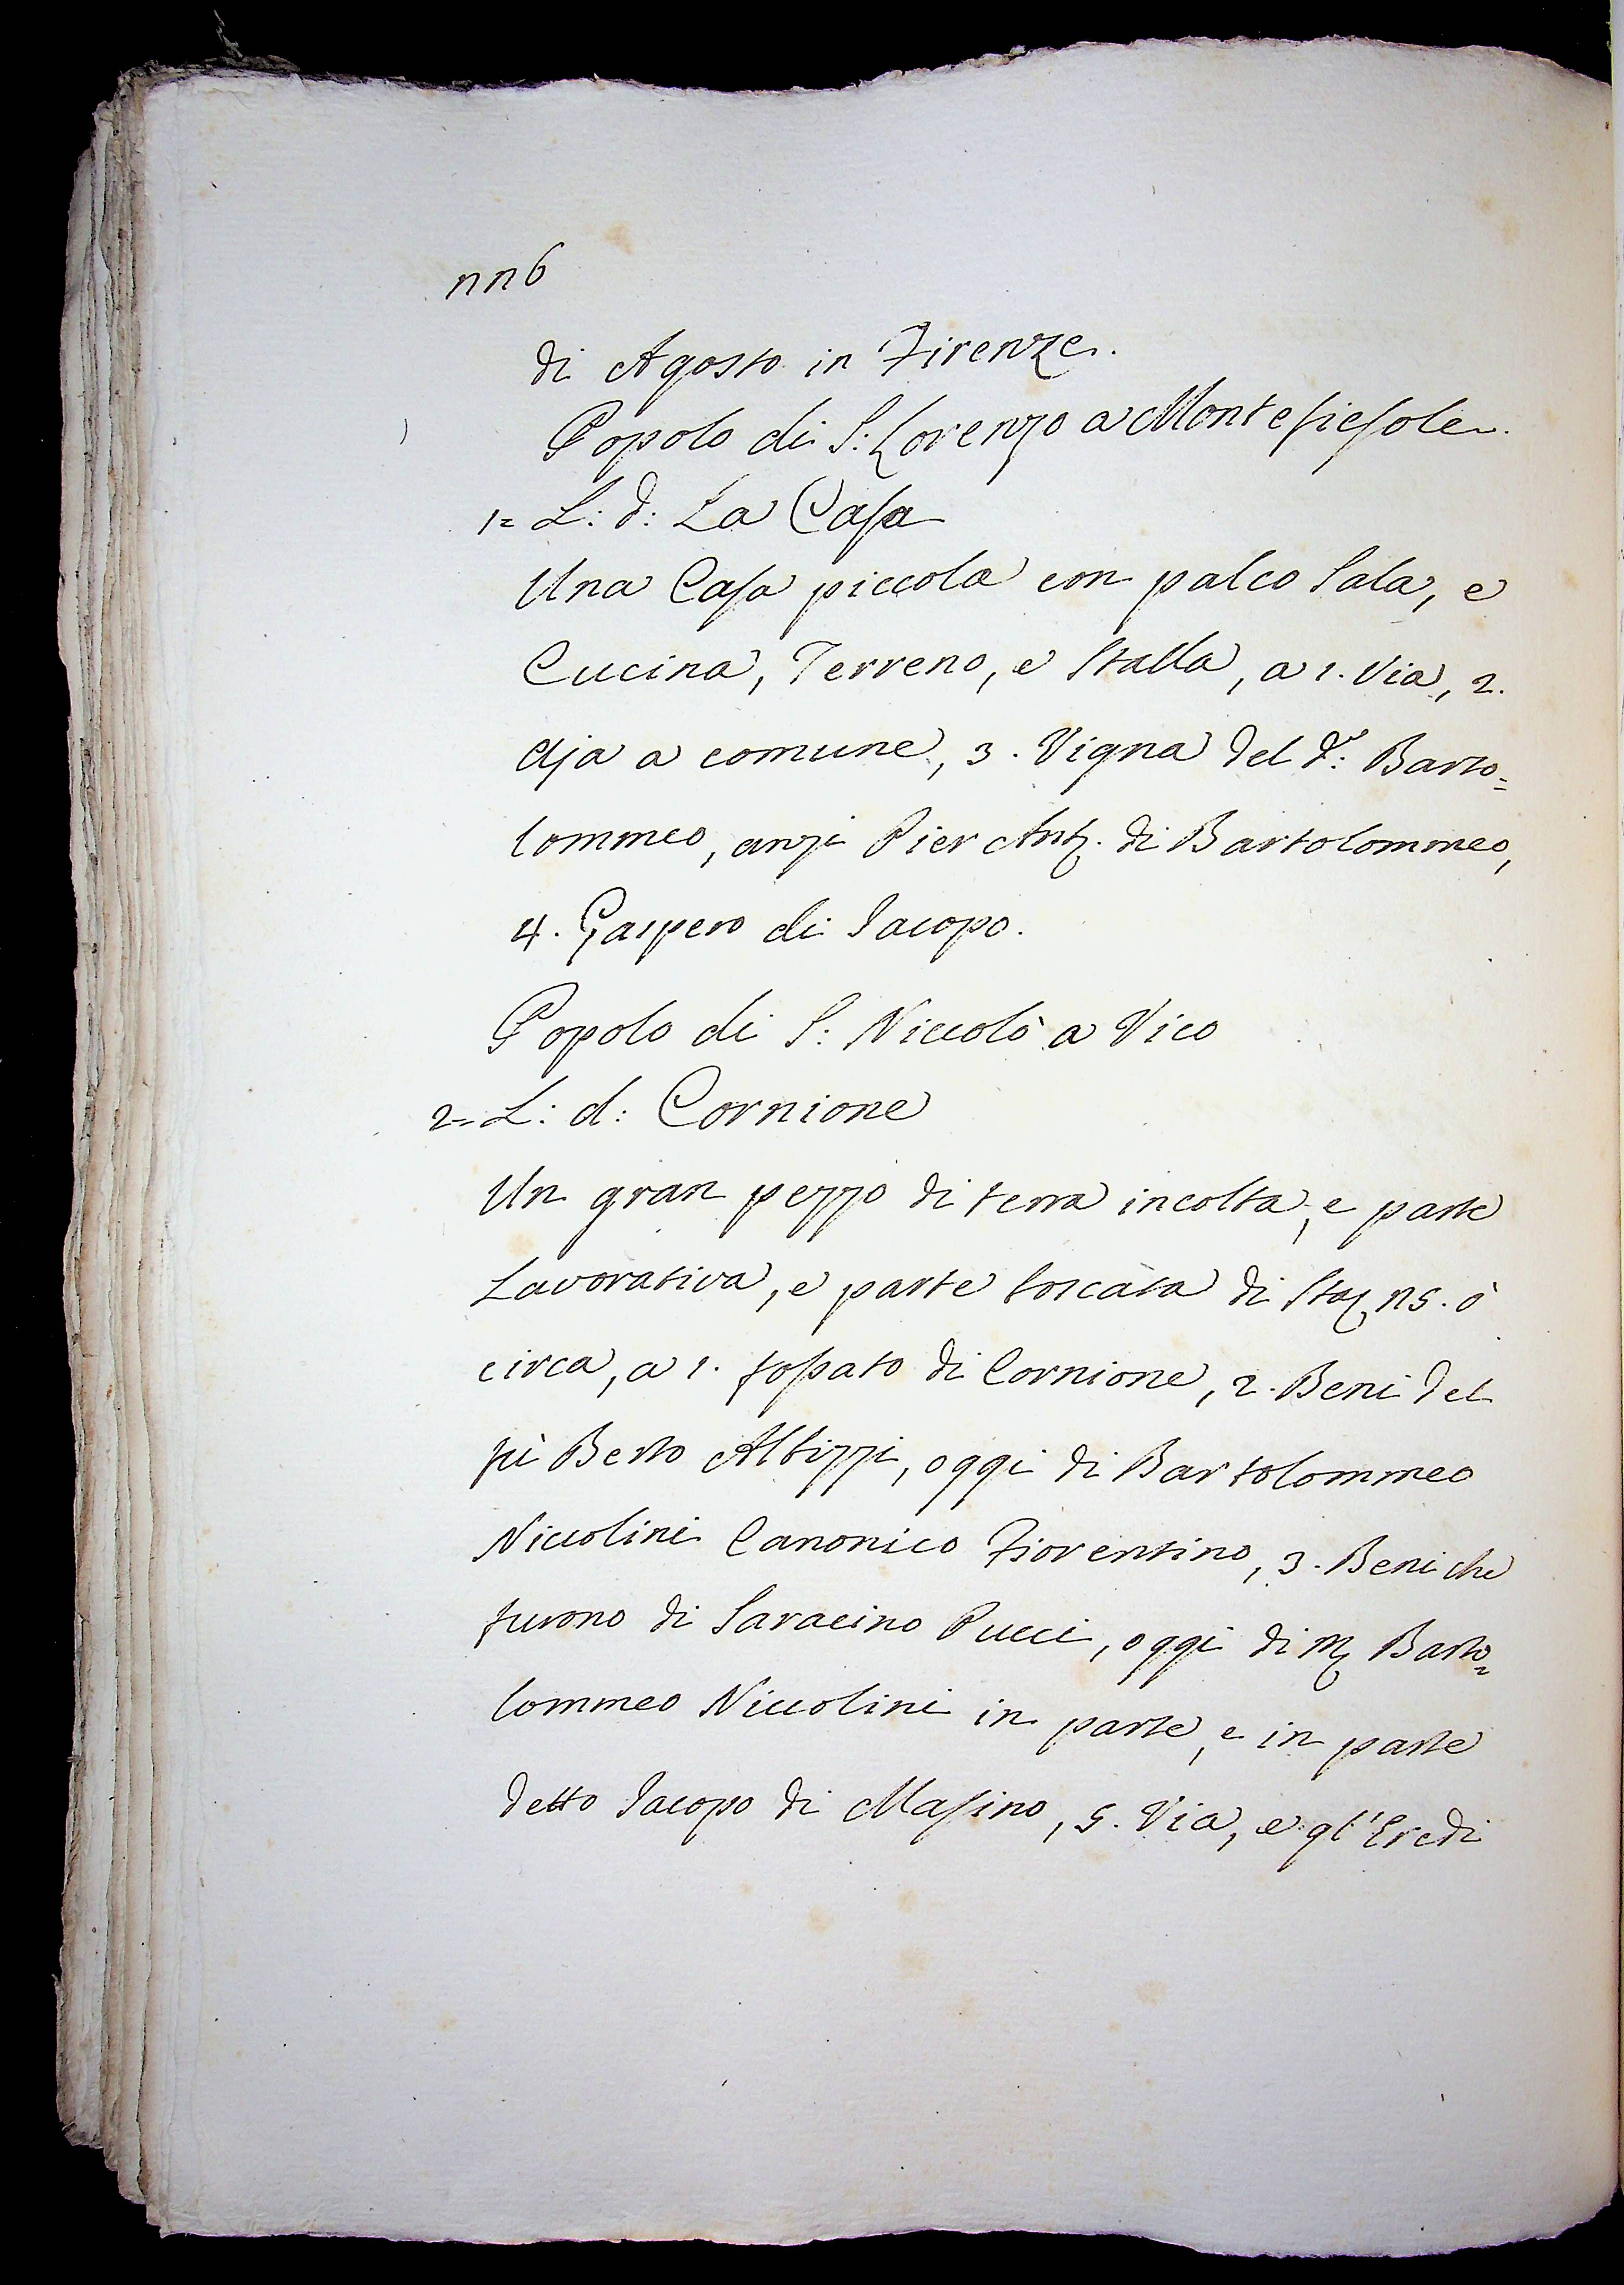 226
di Agosto in Firenze.
Popolo di S: Lorenzo a Montefiesole.
1= L: d: La Casa
Una Casa piccola con palco Sala, e
Cucina, Terreno, e Stalla, a 1. Via, 2.
Aja a comune, 3. Vigna del d.º: Barto=
lommeo, anzi Pier Antº. di Bartolommeo,
4. Gaspero di Jacopo.
Popolo di S: Niccolò a Vico
2= L: d: Cornione
Un gran pezzo di terra incolta, e parte
Lavorativa, e parte boscata di Staª 25. ò
circa, a 1. fossato di Cornione, 2. Beni del
fù Berto Albizzi, oggi di Bartolommeo
Niccolini Canonico Fiorentino, 3. Beni che
furono di Saracino Pucci, oggi di Mº Barto=
lommeo Niccolini in parte, e in parte
detto Jacopo di Masino, 5. Via, e gl'Eredi